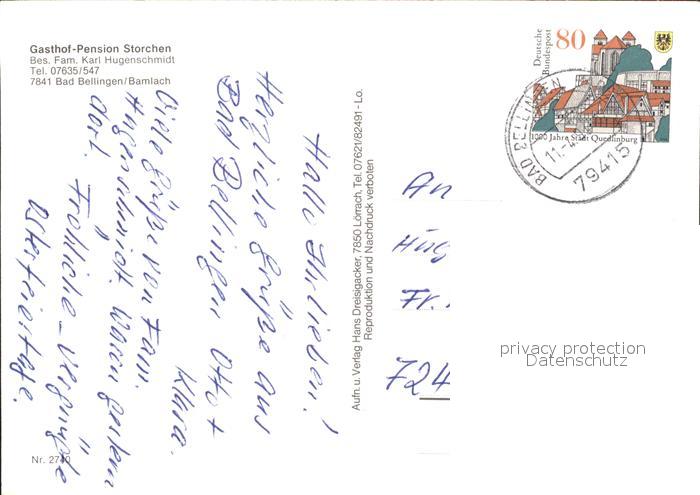 Gasthof-Pension Storchen
Bes. Fam. Karl Hugenschmidt
Tel. 07635/547
7841 Bad Bellingen/Bamlach
Hallo Ihr Lieben!
Herzliche Grüße aus
Bad Bellingen Otto +
Klara.
Viele Grüße von Fam.
Hugenschmidt. Waren gestern
dort.
Fröhliche - vergnügte
Osterfeiertage.
Nr. 2740
Aufn. u. Verlag Hans Dreisigacker, 7850 Lörrach, Tel. 07621/82491 - Lo.
Reproduktion und Nachdruck verboten
Deutsche
Bundespost
80
1000 Jahre Stadt Quedlinburg
BAD BELLINGEN
79415
An
Fr.
724
privacy protection
Datenschutz